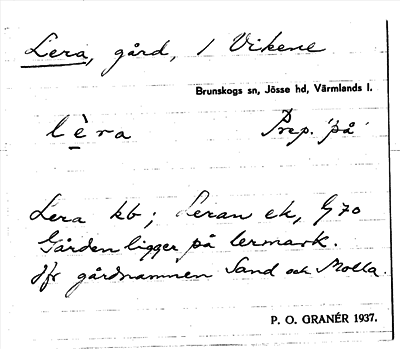 Lera, gård, 1 Vikene
Brunskogs sn, Jösse hd, Värmlands l.
lèra Prep. 'på'
Lera kb; Leran ek, G 70
Gården ligger på lermark.
Jfr gårdnamnen Sand och Molla.
P. O. GRANÉR 1937.